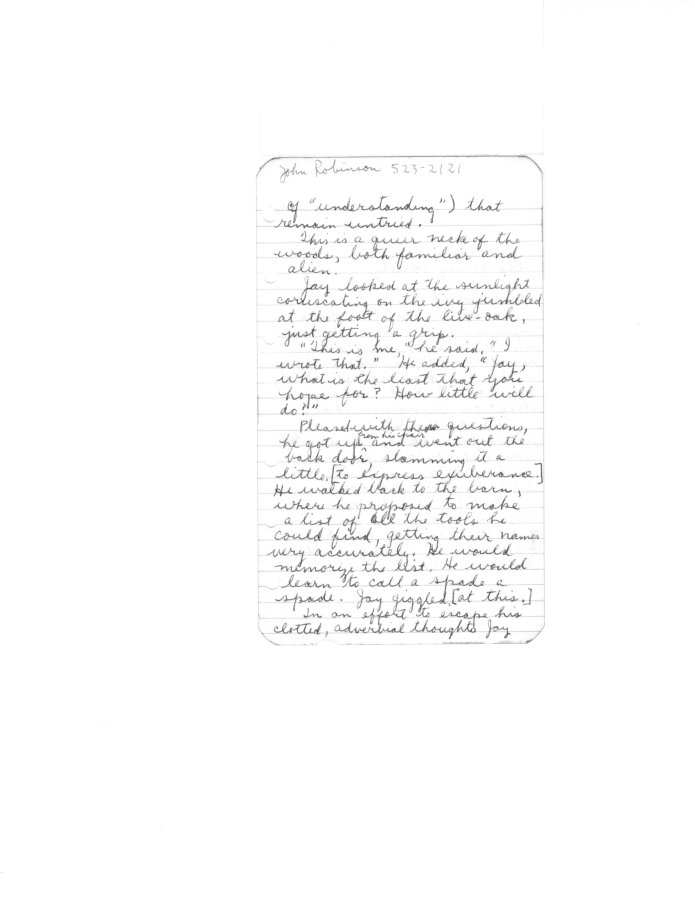 John Robinson 523-2121
of "understanding") that
remain untried.
This is a queer neck of the
woods, both familiar and
alien.
Jay looked at the sunlight
coruscating on the ivy jumbled
at the foot of the live-oak,
just getting a grip.
"This is me," he said. "I
wrote that." He added, "Jay,
what is the least that you
hope for? How little will
do?"
Pleased with these questions,
from his chair
he got up and went out the
back door, slamming it a
little, [to express exuberance.]
He walked back to the barn,
where he proposed to make
a list of all the tools he
could find, getting their names
very accurately. He would
memorize the list. He would
learn to call a spade a
spade. Jay giggled [at this.]
In an effort to escape his
clotted, adverbial thoughts Jay